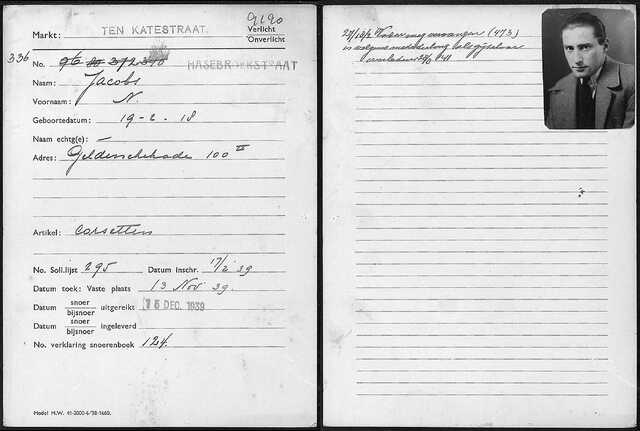 Markt: TEN KATESTRAAT.
Verlicht
Onverlicht
336
No.
HASEBROEKSTRAAT
Naam: Jacobs
Voornaam: N.
Geboortedatum: 19-2-18
Naam echtg(e): —
Adres: Gelderschekade 100 II
Artikel: Corsetten
No. Soll.lijst 295 Datum Inschr. 17/2 39
Datum toek: Vaste plaats 13 Nov 39
Datum snoer bijsnoer uitgereikt 16 DEC. 1939
Datum snoer bijsnoer ingeleverd
No. verklaring snoerenboek 124.
Model M.W. 41-2000-6-'38-1660.
(473)
is volgens mededeeling
overleden